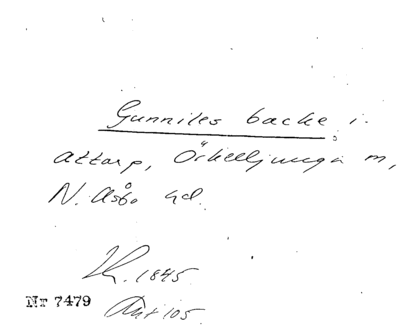 Gunniles backe i.
attarp, Örkelljunga m,
N. Åsbo hd.
1845
Nr 7479 105